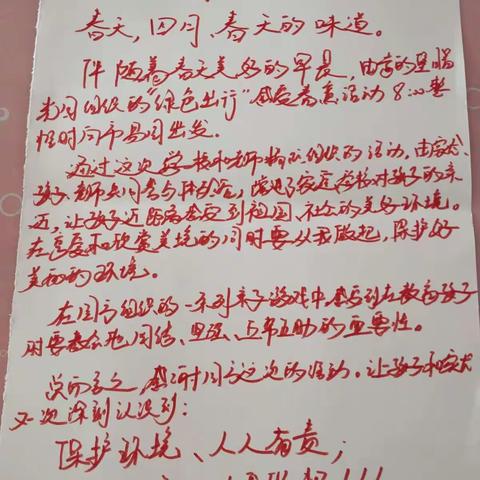 春天,四月 春天的味道。
伴随着春天美好的早晨,由
园组织的"绿色出行"感受春意活动 8:00整
准时向市易园出发。
通过这次学校和老师精心组织的活动,由家长、
孩子、老师共同参与体验,
近,让孩子近距离感受到祖国、社会的美好环境。
在享受和欣赏美境的同时要从我做起,保护好
美丽的环境。
在园方组织的一系列亲子游戏中感受到在教育孩子
时要教会他团结、坚强、互帮互助的重要性。
总而言之 感谢园方这次的活动。让孩子和家长
又一次深刻认识到:
保护环境、人人有责;